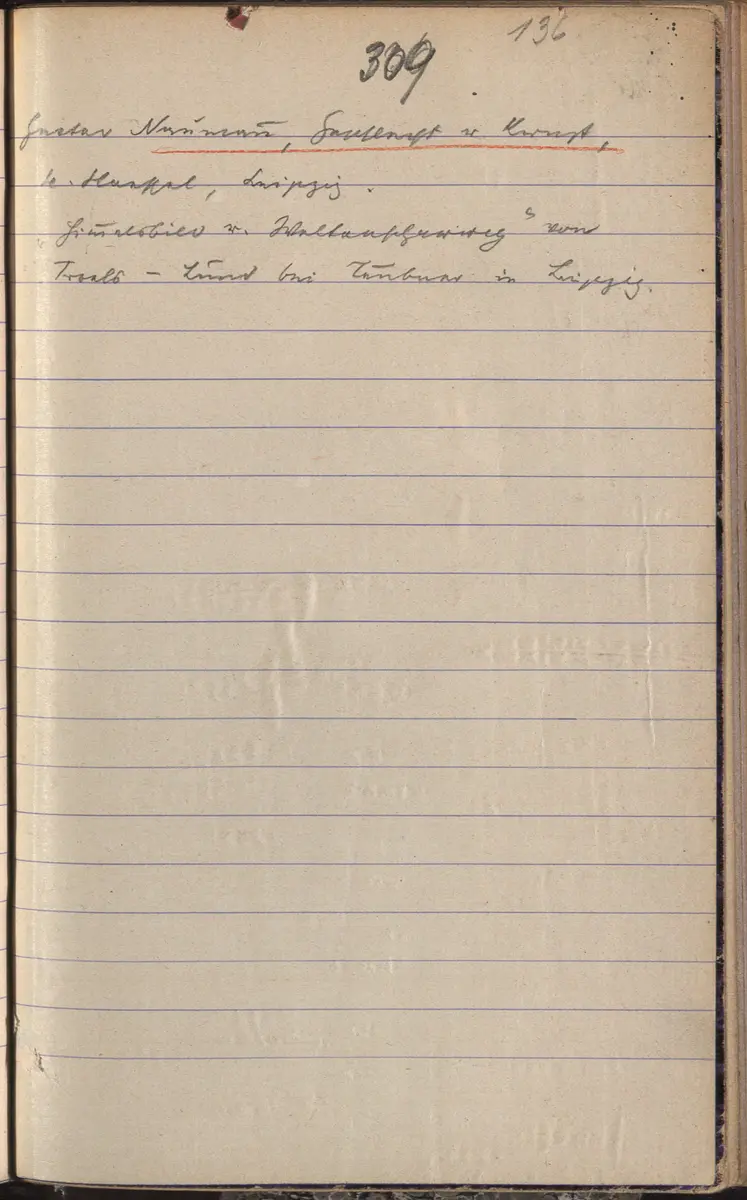 136
309
Gustav Naumann, Geschlecht u Kunst,
b. Haessel, Leipzig.
„Himmelsbild u. Weltanschauung“ von
Troels – Lund bei Teubner in Leipzig.